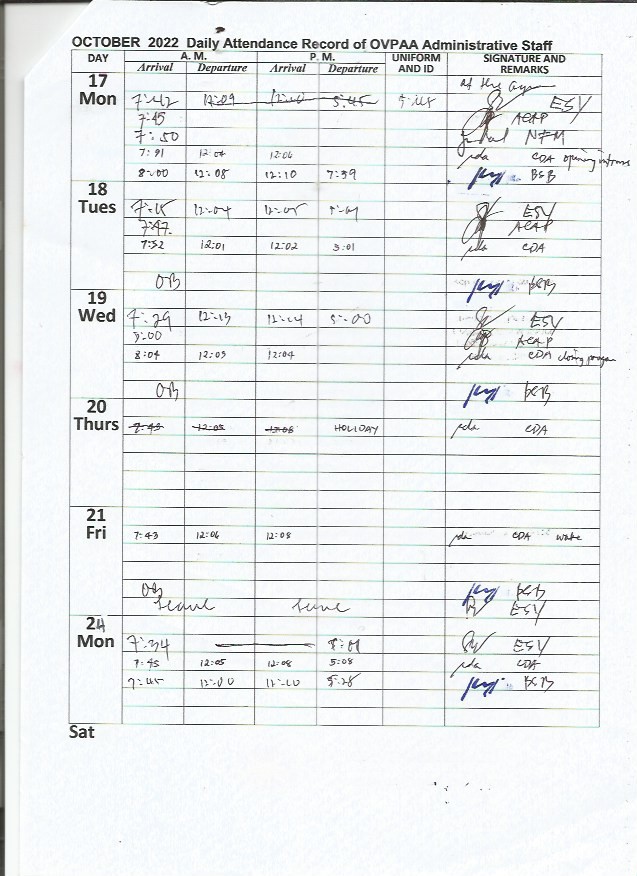 OCTOBER 2022 Daily Attendance Record of OVPAA Administrative Staff
DAY A. M. P. M. UNIFORM AND ID SIGNATURE AND REMARKS
Arrival Departure Arrival Departure
17 Mon
7:42 12:09 5:45 ESY
7:45 ACAP
7:50 NFM
12:04 12:06 CDA opening
8:00 12:08 12:10 7:59 BSB
18 Tues
12:04 ESY
7:47 ACAP
7:52 12:01 12:02 5:01 CDA
OB BSB
19 Wed
7:29 12:13 12:14 5:00 ESY
ACAP
8:04 12:03 12:04 CDA closing program
OB BSB
20 Thurs
HOLIDAY CDA
21 Fri
7:43 12:06 12:08 CDA
OB BSB
Leave Leave ESY
24 Mon
7:34 ESY
7:45 12:05 12:08 5:08 CDA
7:45 12:00 12:10 5:28 BSB
Sat